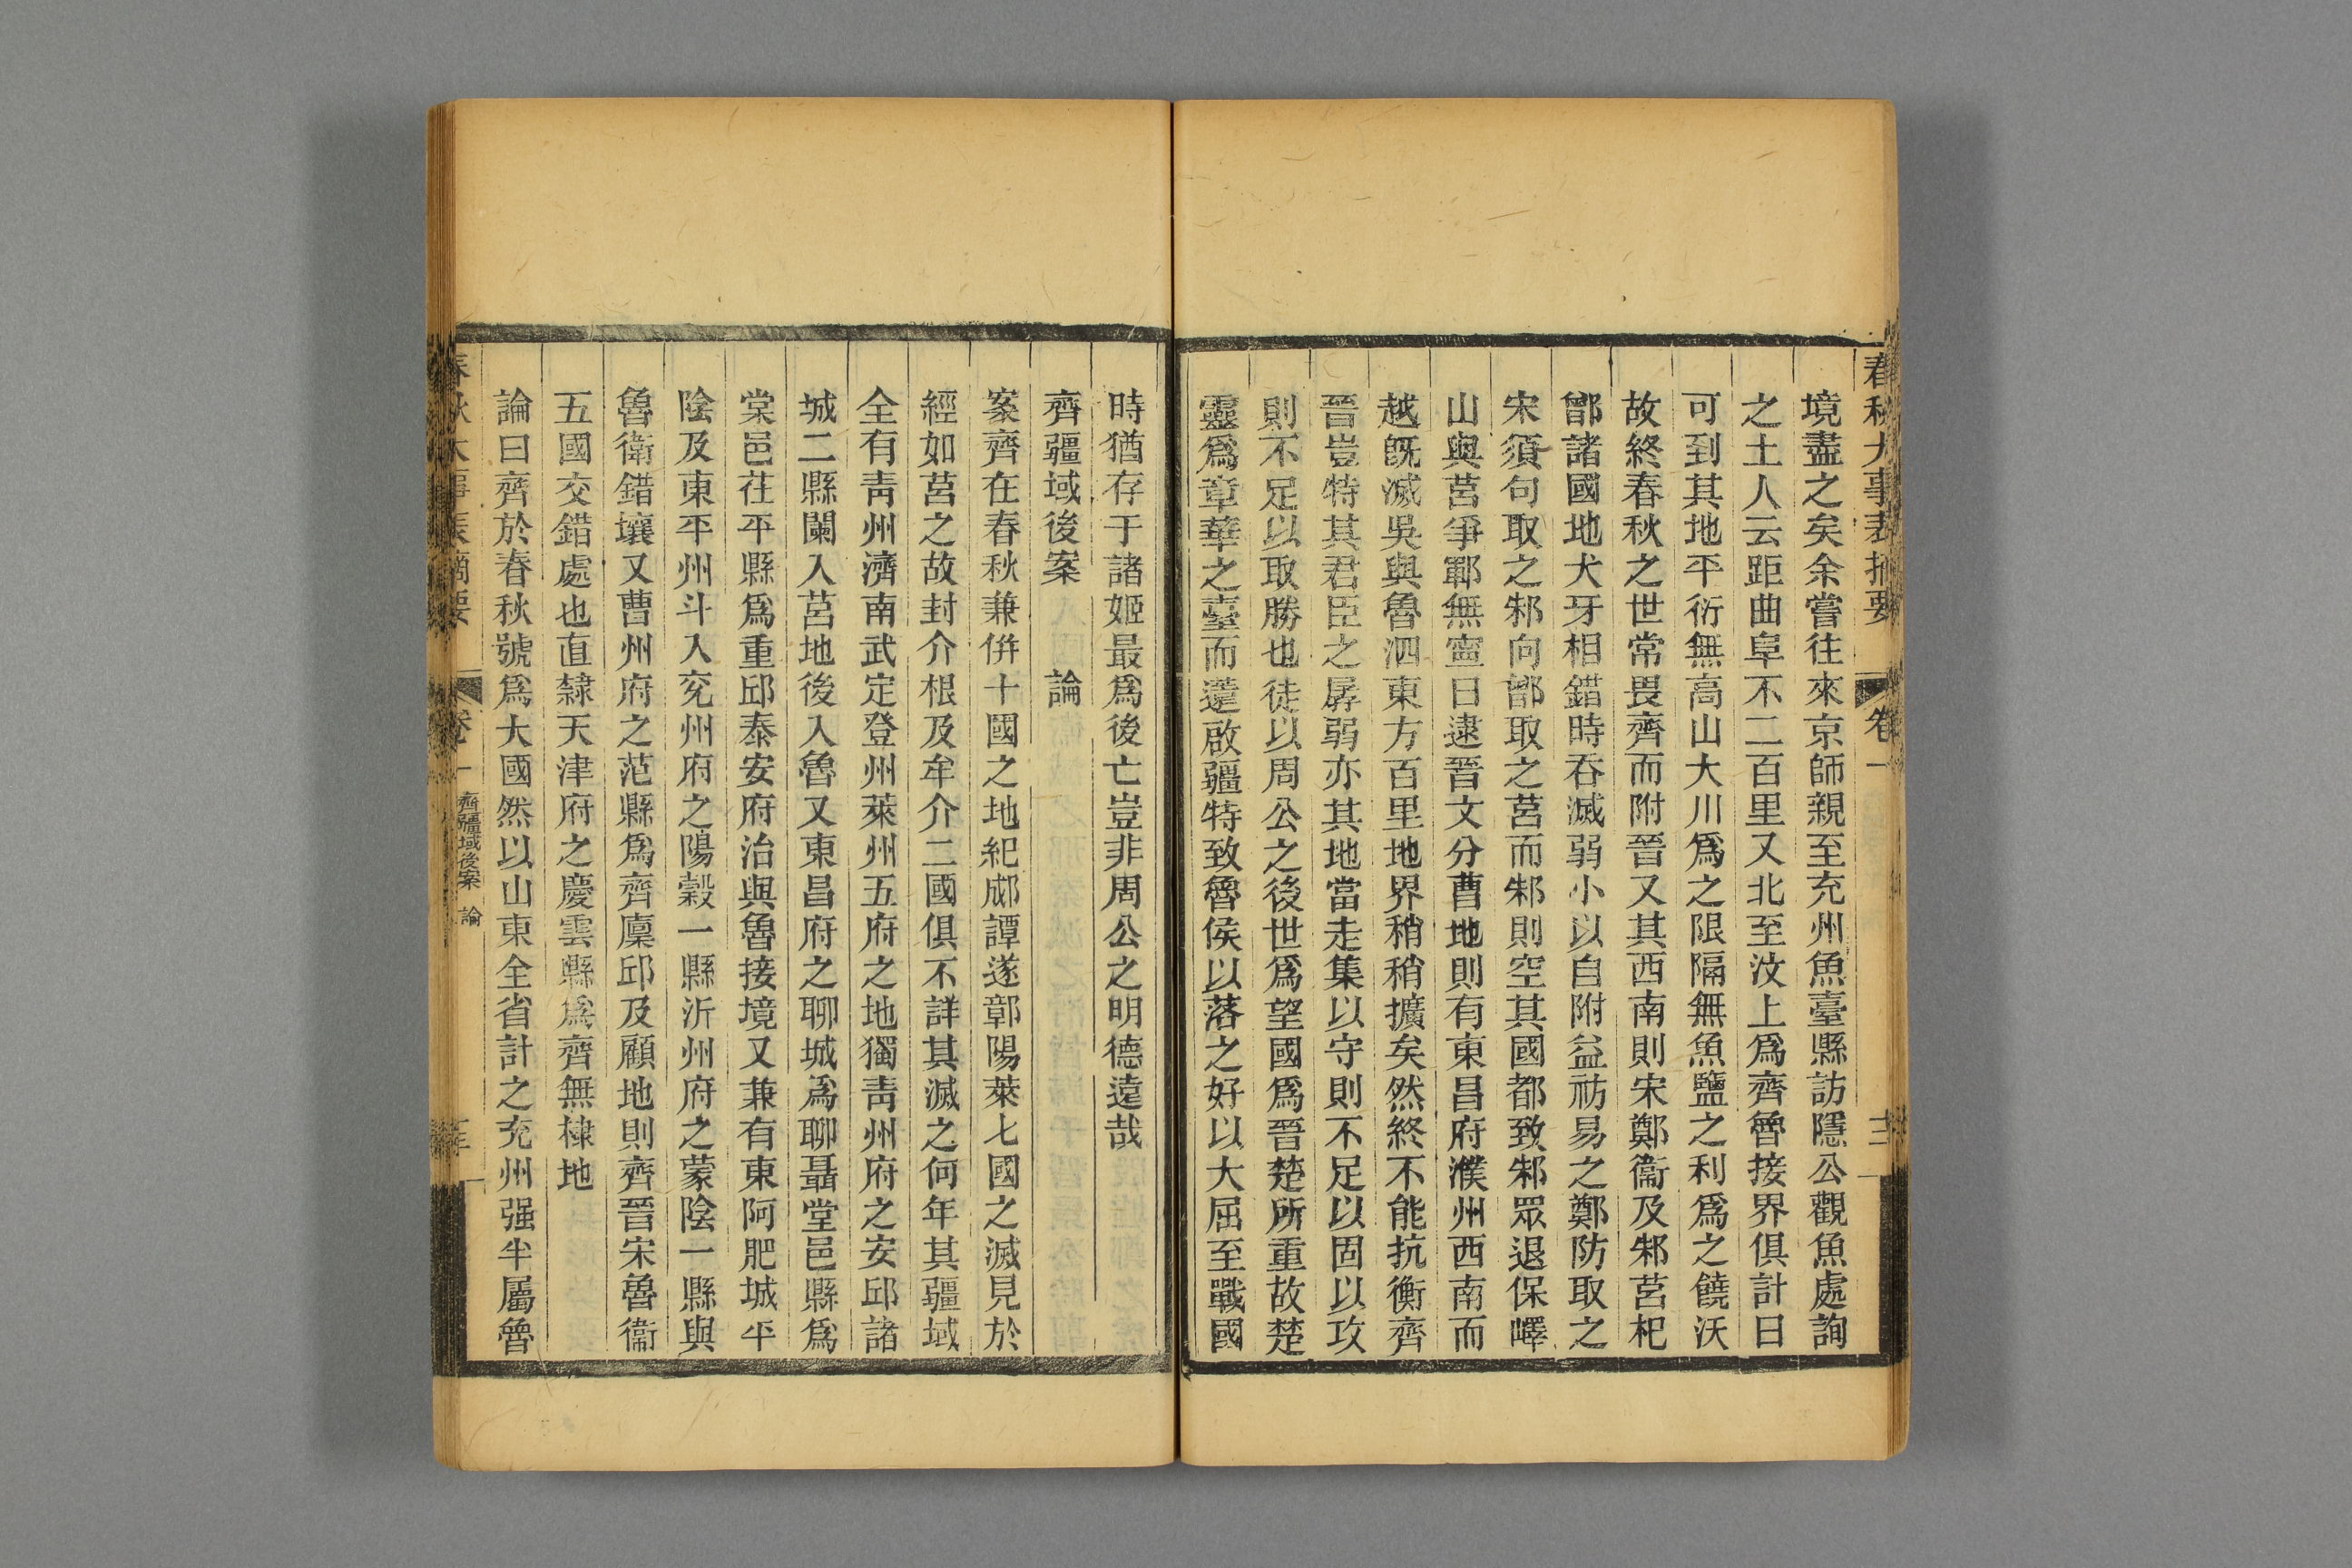 春秋大事表摘要 卷一 十二
境盡之矣余嘗往來京師親至兗州魚臺縣訪隱公觀魚處詢
之土人云距曲阜不二百里又北至汶上爲齊魯接界俱計日
可到其地平衍無高山大川爲之限隔無魚鹽之利爲之饒沃
故終春秋之世常畏齊而附晉又其西南則宋鄭衞及邾莒杞
鄫諸國地犬牙相錯時吞滅弱小以自附益祊易之鄭防取之
宋須句取之邾向鄫取之莒而邾則空其國都致邾眾退保嶧
山與莒爭鄆無寧日逮晉文分曹地則有東昌府濮州西南而
越既滅吳與魯泗東方百里地界稍稍擴矣然終不能抗衡齊
晉豈特其君臣之孱弱亦其地當走集以守則不足以固以攻
則不足以取勝也徒以周公之後世爲望國爲晉楚所重故楚
靈爲章華之臺而薳啟疆特致魯侯以落之好以大屈至戰國
時猶存于諸姬最爲後亡豈非周公之明德遠哉
齊疆域後案 論
案齊在春秋兼併十國之地紀郕譚遂鄣陽萊七國之滅見於
經如莒之故封介根及牟介二國俱不詳其滅之何年其疆域
全有青州濟南武定登州萊州五府之地獨青州府之安邱諸
城二縣闌入莒地後入魯又東昌府之聊城爲聊聶堂邑縣爲
棠邑茌平縣爲重邱泰安府治與魯接境又兼有東阿肥城平
陰及東平州斗入兗州府之陽穀一縣沂州府之蒙陰一縣與
魯衛錯壤又曹州府之范縣爲齊廩邱及顧地則齊晉宋魯衞
五國交錯處也直隸天津府之慶雲縣爲齊無棣地
論曰齊於春秋號爲大國然以山東全省計之兗州强半屬魯
春秋大事表摘要 卷一 齊疆域後案 論